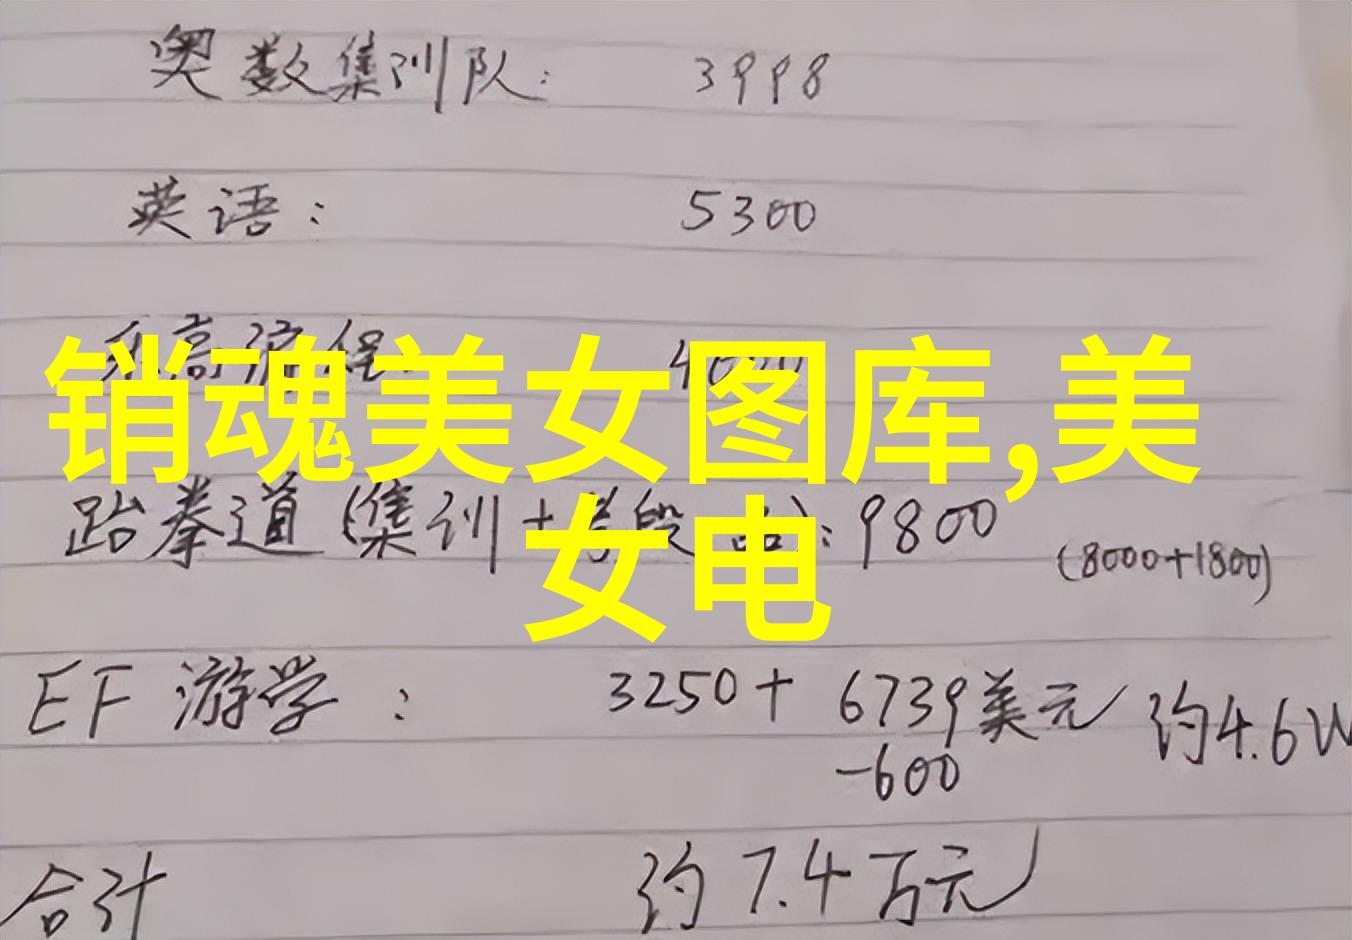 奥数集训队: 3998
英语: 5300
销魂美女图库,美
女电
跆拳道(集训+ : 9800
(8000+1800)
EF 游学: 3250+ 6739美元 约4.6W
-600
合计 约7.4万元